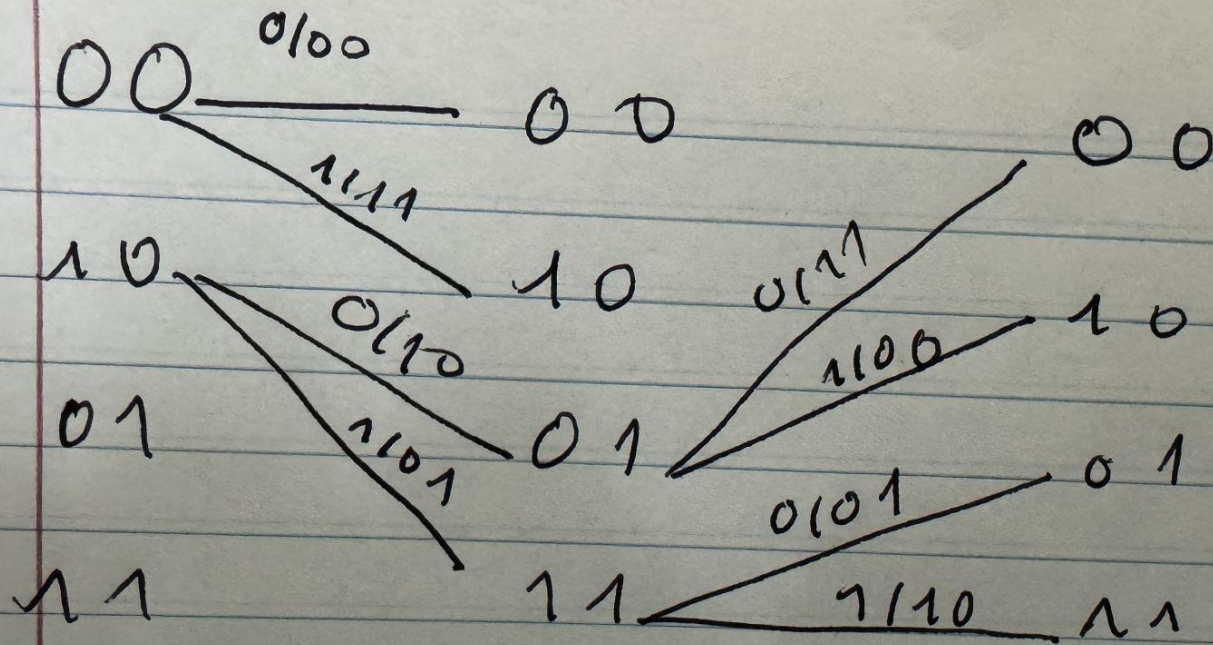 0/00
00 00 00
1/11
10 10 0/11 10
0/10 1/00
01 1/01 01 0/01 01
11 11 1/10 11